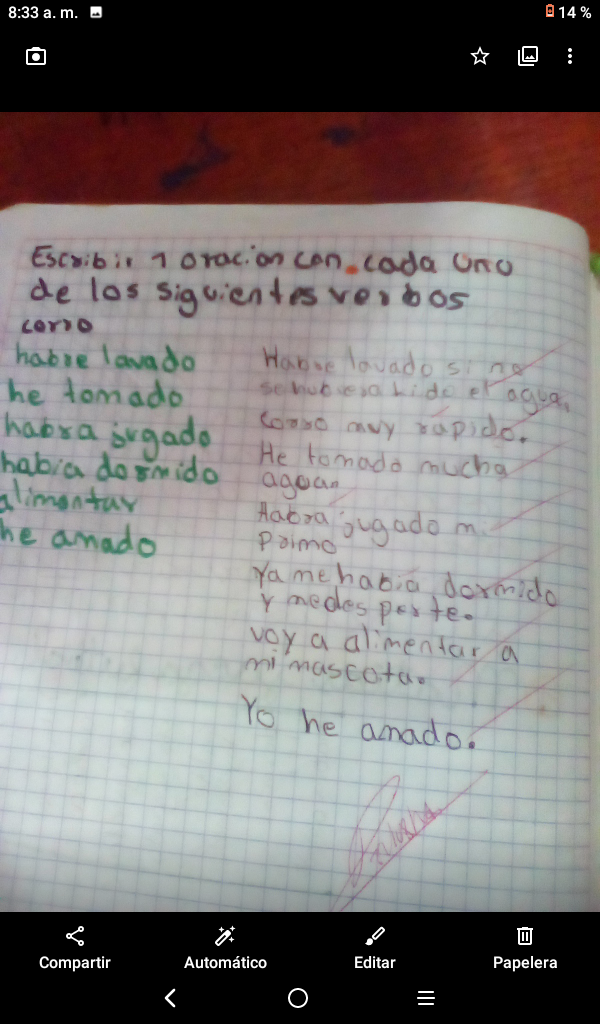 8:33 a. m.
14 %
Escribir 1 oracion con cada uno
de los siguientes verbos
corro
habre lavado
he tomado
habra jugado
habia dormido
alimentar
he amado
Habre lavado si no
se hubiera hido el agua.
Corro muy rapido.
He tomado mucha
agua
Habra jugado mi
primo
Ya me habia dormido
y me desperte.
voy a alimentar a
mi mascota.
Yo he amado.
Compartir
Automático
Editar
Papelera